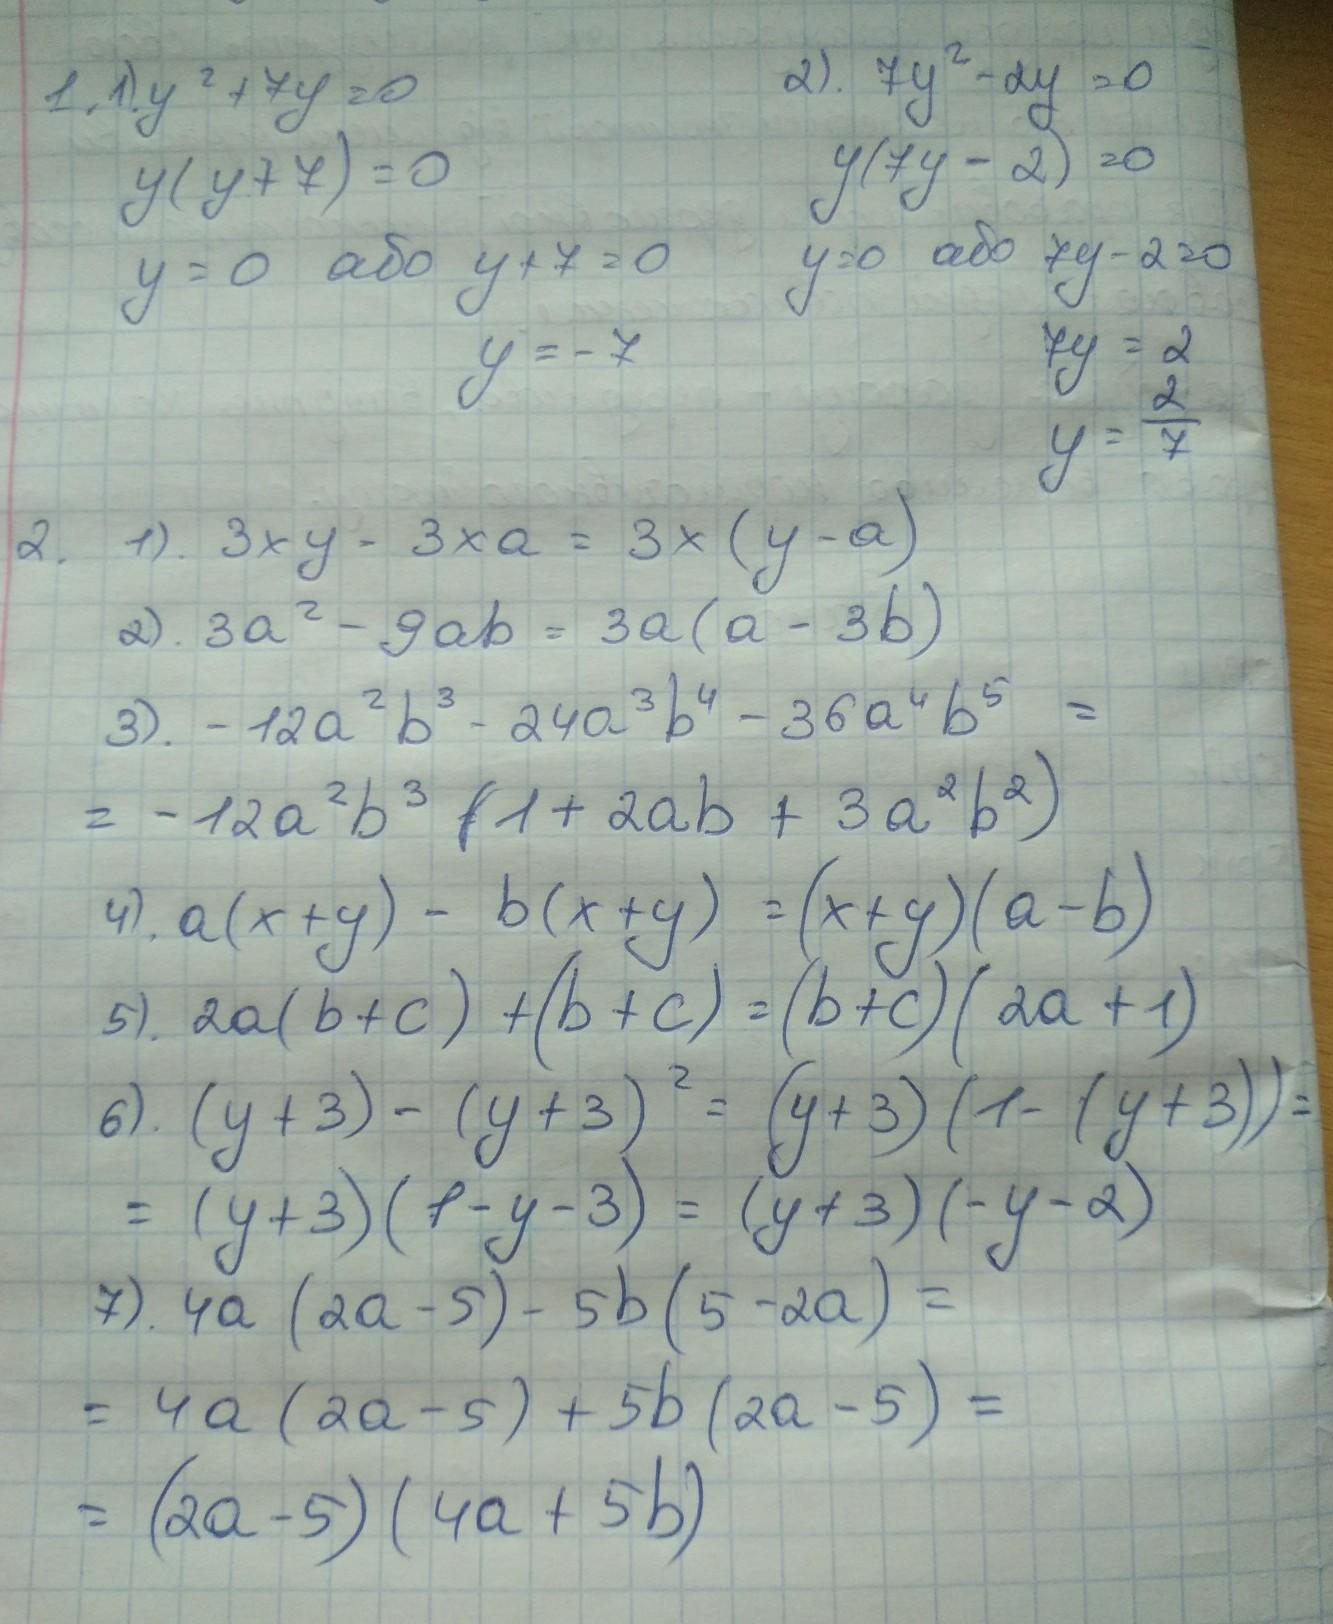 1. 1). y² + 7y = 0
y(y+7) = 0
y = 0 або y+7 = 0
y = -7
2). 7y² - 2y = 0
y(7y - 2) = 0
y=0 або 7y-2=0
7y = 2
y = 2/7
2. 1). 3xy - 3xa = 3x(y-a)
2). 3a² - 9ab = 3a(a - 3b)
3). -12a²b³ - 24a³b⁴ - 36a⁴b⁵ =
= -12a²b³ (1 + 2ab + 3a²b²)
4). a(x+y) - b(x+y) = (x+y)(a-b)
5). 2a(b+c) + (b+c) = (b+c)(2a+1)
6). (y+3) - (y+3)² = (y+3)(1-(y+3)) =
= (y+3)(1-y-3) = (y+3)(-y-2)
7). 4a(2a-5) - 5b(5-2a) =
= 4a(2a-5) + 5b(2a-5) =
= (2a-5)(4a+5b)